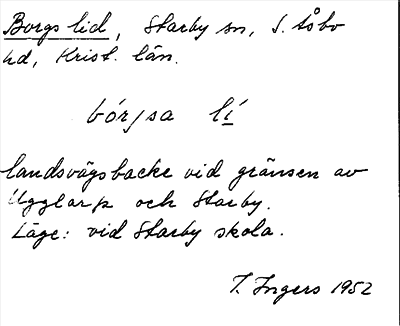 Borgs lid, Starby sn, S. Åsbo
hd, Krist. län.
bórjsa lí
landsvägsbacke vid gränsen av
Ugglarp och Starby.
Läge: vid Starby skola.
I. Ingers 1952